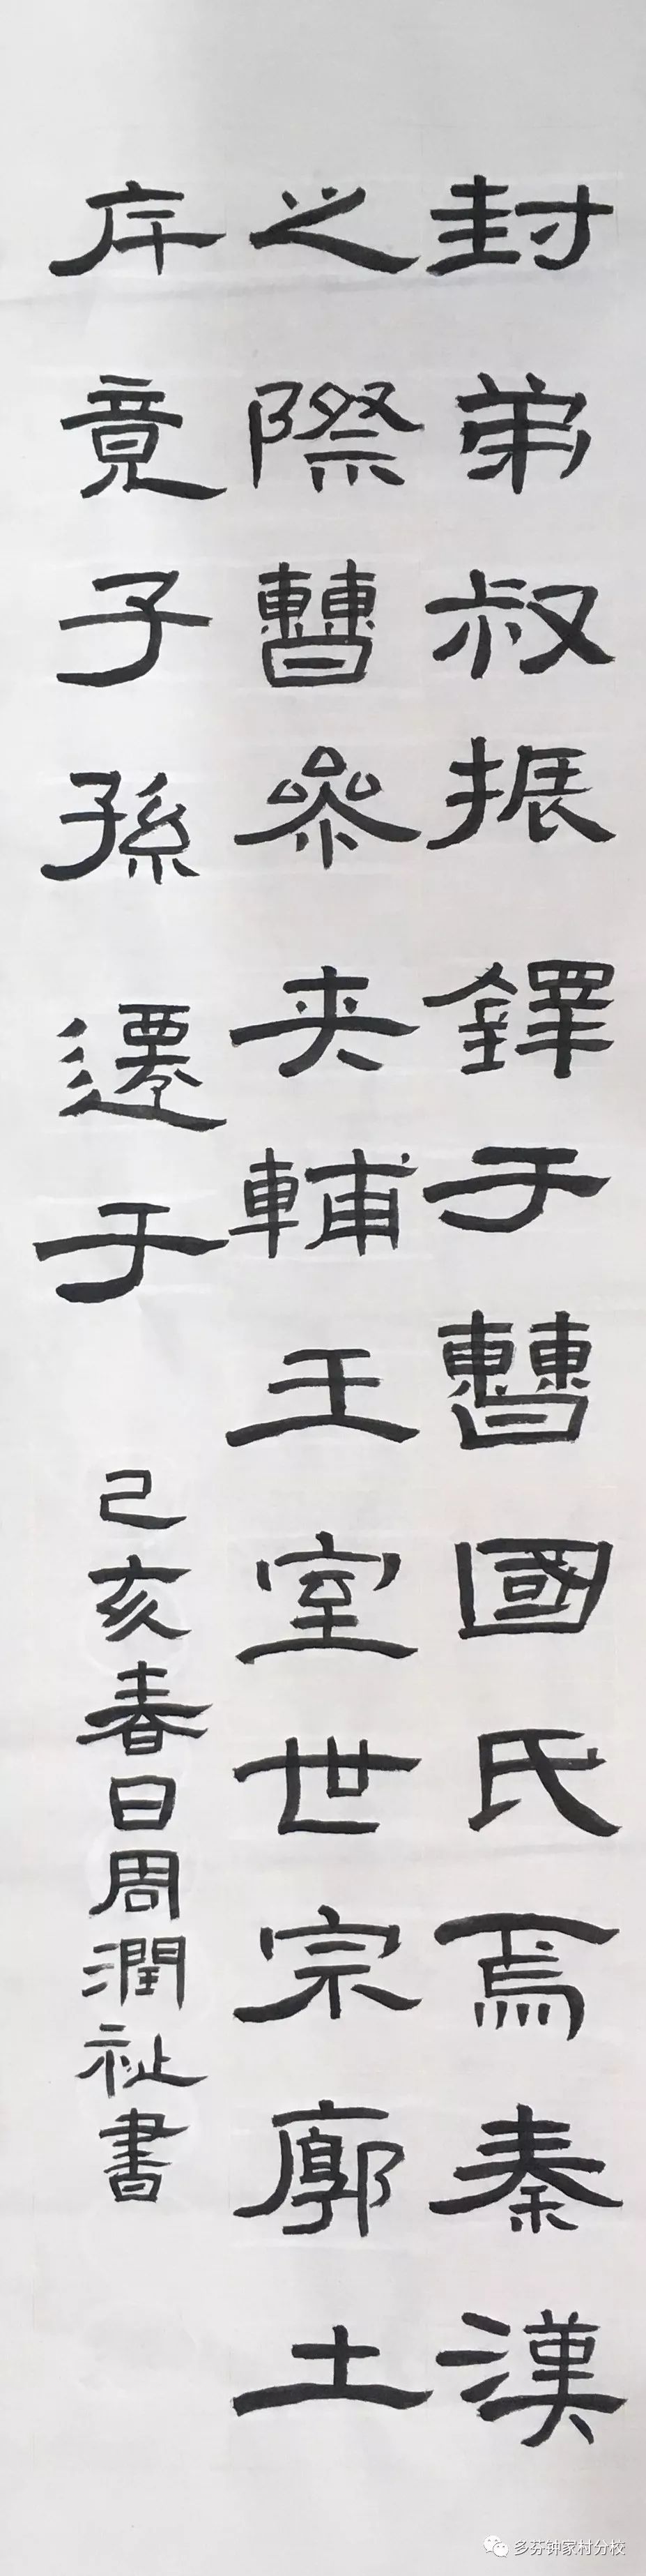 封弟叔振鐸于曹國氏焉秦漢
之際曹參夾輔王室世宗廓土
斥竟子孫遷于
己亥春日周潤祉書
多芬钟家村分校